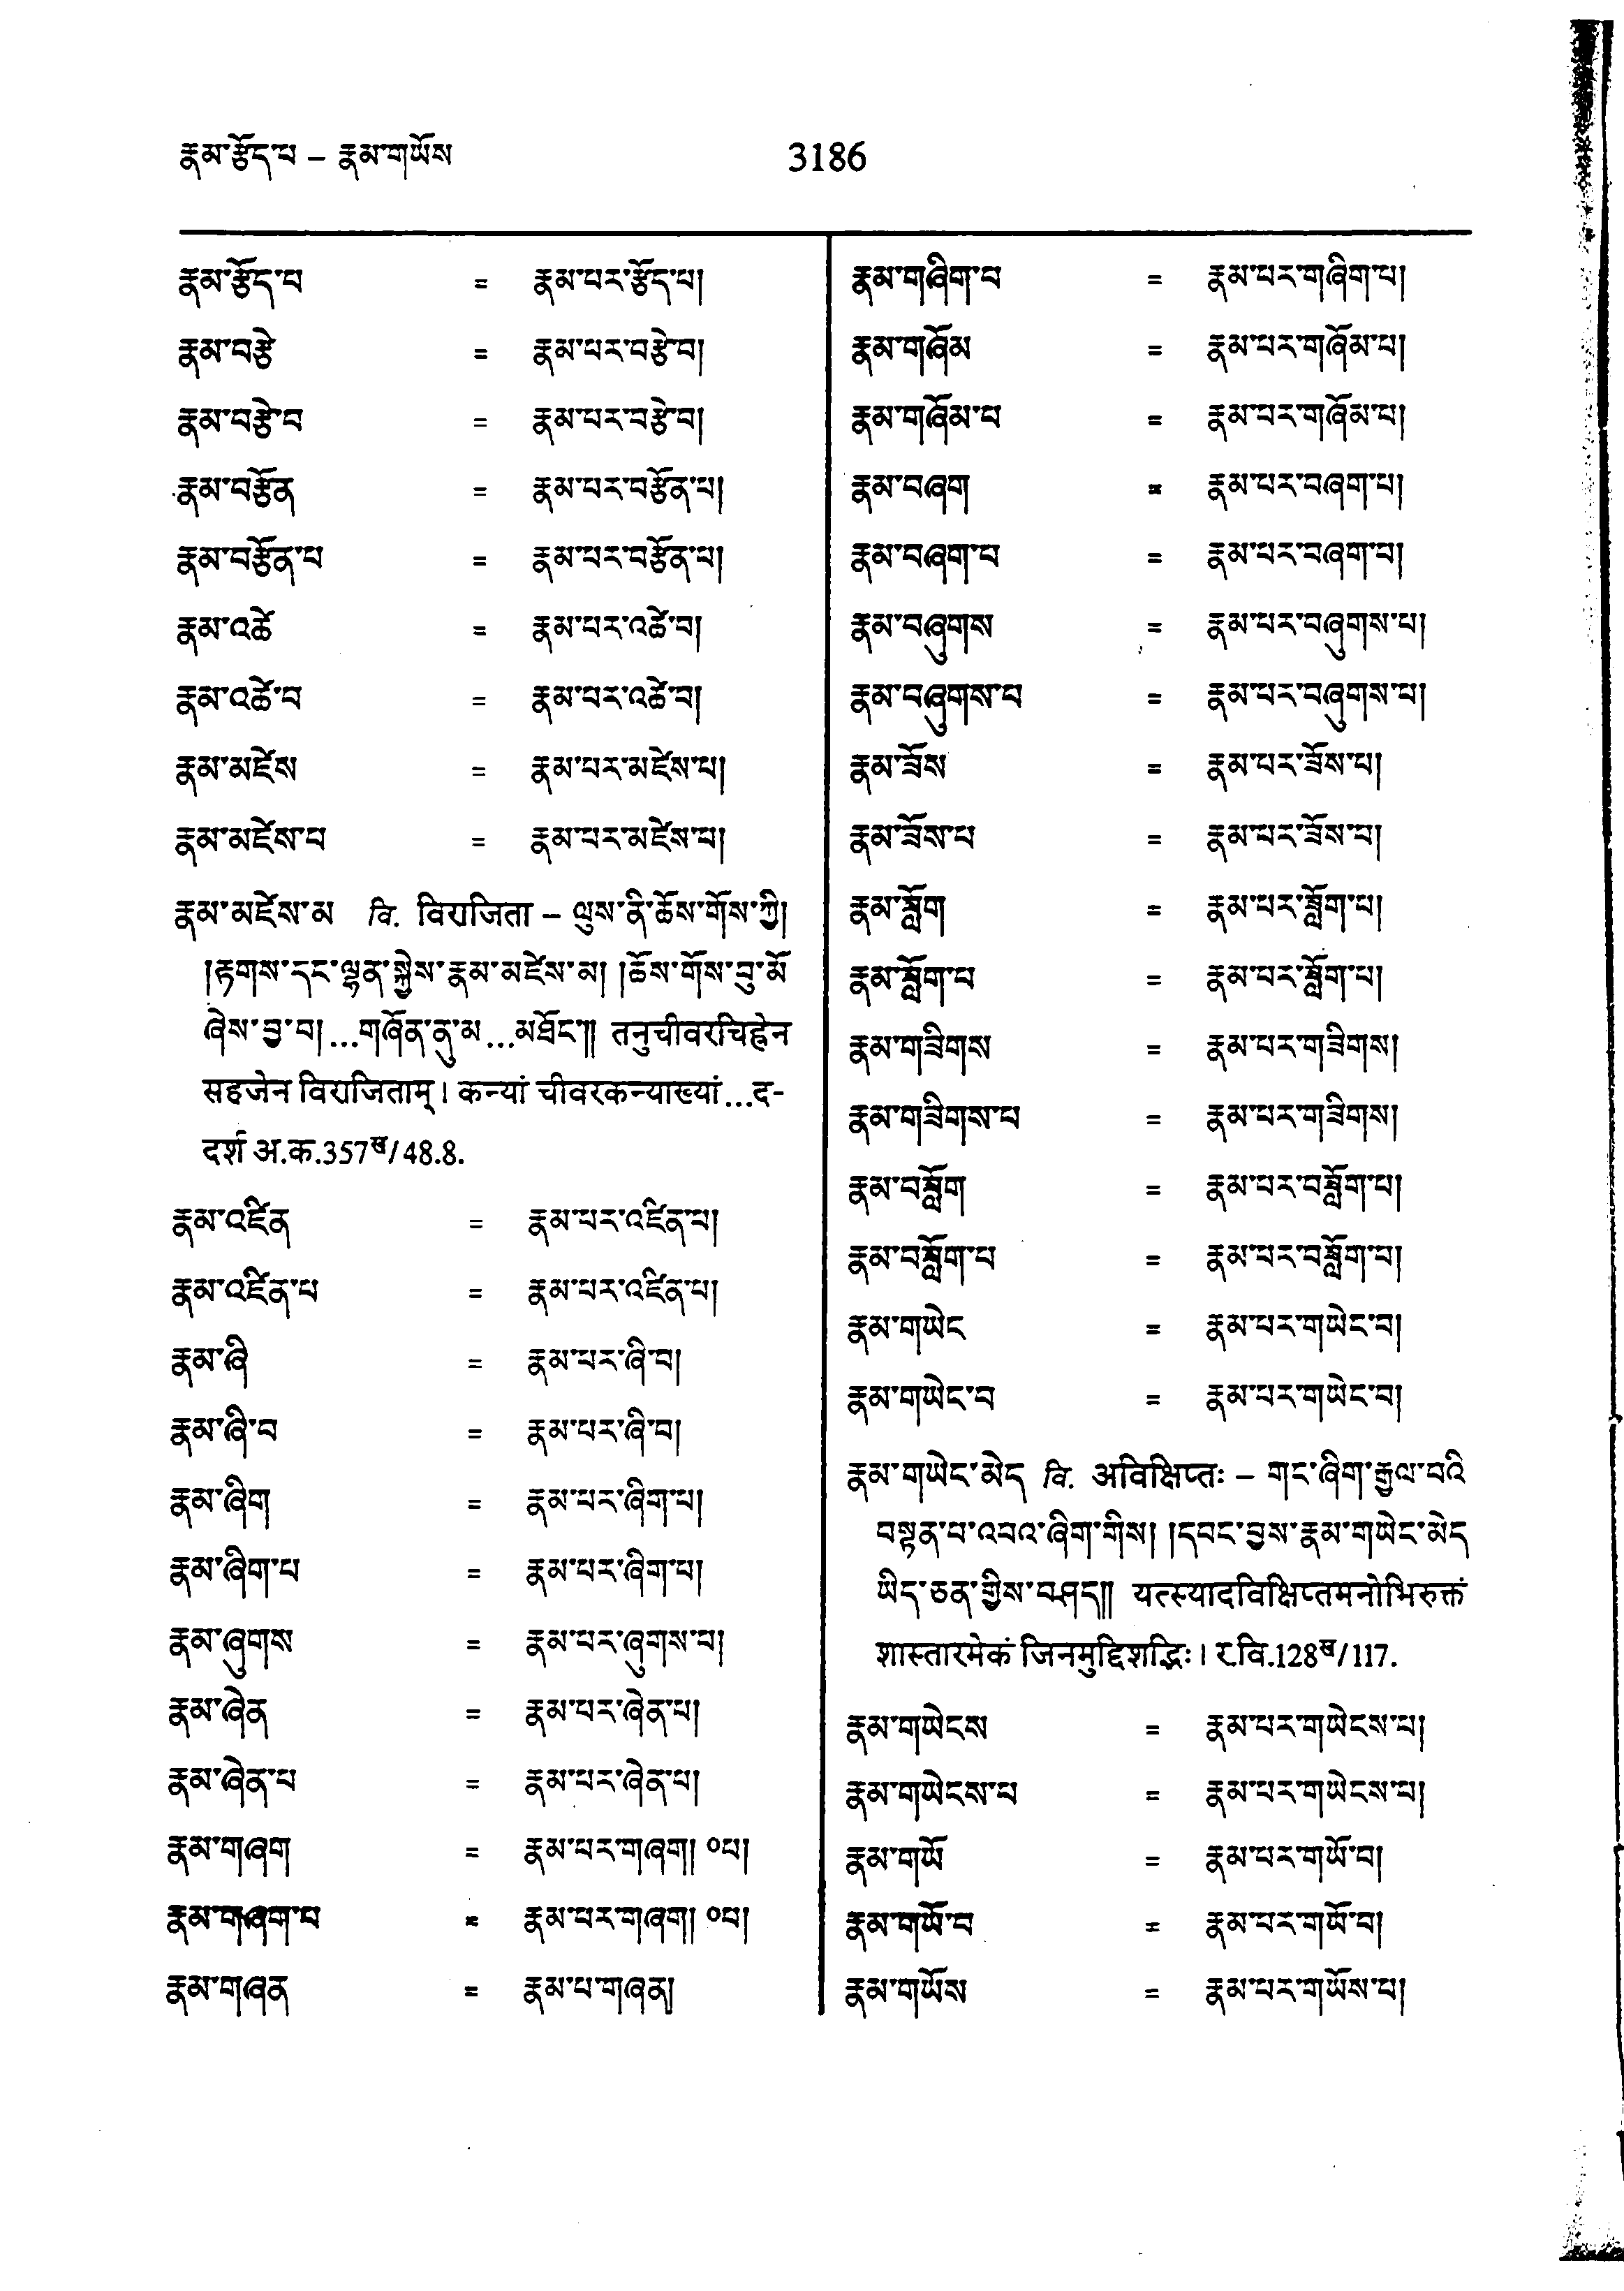 རྣམ་རྩོད་པ – རྣམ་གཡོས
3186
རྣམ་རྩོད་པ = རྣམ་པར་རྩོད་པ།
རྣམ་བརྩེ = རྣམ་པར་བརྩེ་བ།
རྣམ་བརྩེ་བ = རྣམ་པར་བརྩེ་བ།
རྣམ་བརྩོན = རྣམ་པར་བརྩོན་པ།
རྣམ་བརྩོན་པ = རྣམ་པར་བརྩོན་པ།
རྣམ་འཚེ = རྣམ་པར་འཚེ་བ།
རྣམ་འཚེ་བ = རྣམ་པར་འཚེ་བ།
རྣམ་མཛེས = རྣམ་པར་མཛེས་པ།
རྣམ་མཛེས་པ = རྣམ་པར་མཛེས་པ།
རྣམ་མཛེས་མ वि. विराजिता – ལུས་ནི་ཆོས་གོས་ཀྱི།
།རྟགས་དང་ལྷན་སྐྱེས་རྣམ་མཛེས་མ། །ཆོས་གོས་བུ་མོ
ཞེས་བྱ་བ། ...གཞོན་ནུ་མ ...མཐོང་༎ तनुचीवरचिह्नेन
सहजेन विराजिताम् । कन्यां चीवरकन्याख्यां ...द-
दर्श अ.क.357ख/48.8.
རྣམ་འཛིན = རྣམ་པར་འཛིན་པ།
རྣམ་འཛིན་པ = རྣམ་པར་འཛིན་པ།
རྣམ་ཞི = རྣམ་པར་ཞི་བ།
རྣམ་ཞི་བ = རྣམ་པར་ཞི་བ།
རྣམ་ཞིག = རྣམ་པར་ཞིག་པ།
རྣམ་ཞིག་པ = རྣམ་པར་ཞིག་པ།
རྣམ་ཞུགས = རྣམ་པར་ཞུགས་པ།
རྣམ་ཞེན = རྣམ་པར་ཞེན་པ།
རྣམ་ཞེན་པ = རྣམ་པར་ཞེན་པ།
རྣམ་གཞག = རྣམ་པར་གཞག། ༠པ།
རྣམ་གཞག་པ = རྣམ་པར་གཞག། ༠པ།
རྣམ་གཞན = རྣམ་པ་གཞན།
རྣམ་གཞིག་པ = རྣམ་པར་གཞིག་པ།
རྣམ་གཞོམ = རྣམ་པར་གཞོམ་པ།
རྣམ་གཞོམ་པ = རྣམ་པར་གཞོམ་པ།
རྣམ་བཞག = རྣམ་པར་བཞག་པ།
རྣམ་བཞག་པ = རྣམ་པར་བཞག་པ།
རྣམ་བཞུགས = རྣམ་པར་བཞུགས་པ།
རྣམ་བཞུགས་པ = རྣམ་པར་བཞུགས་པ།
རྣམ་ཟོས = རྣམ་པར་ཟོས་པ།
རྣམ་ཟོས་པ = རྣམ་པར་ཟོས་པ།
རྣམ་ཟློག = རྣམ་པར་ཟློག་པ།
རྣམ་ཟློག་པ = རྣམ་པར་ཟློག་པ།
རྣམ་གཟིགས = རྣམ་པར་གཟིགས།
རྣམ་གཟིགས་པ = རྣམ་པར་གཟིགས།
རྣམ་བཟློག = རྣམ་པར་བཟློག་པ།
རྣམ་བཟློག་པ = རྣམ་པར་བཟློག་པ།
རྣམ་གཡེང = རྣམ་པར་གཡེང་བ།
རྣམ་གཡེང་བ = རྣམ་པར་གཡེང་བ།
རྣམ་གཡེང་མེད वि. अविक्षिप्तः – གང་ཞིག་རྒྱལ་བའི
བསྟན་པ་འབའ་ཞིག་གིས། །དབང་བྱས་རྣམ་གཡེང་མེད
ཡིད་ཅན་གྱིས་བཤད༎ यत्स्यादविक्षिप्तमनोभिरुक्तं
शास्तारमेकं जिनमुद्दिशद्भिः । र.वि.128ख/117.
རྣམ་གཡེངས = རྣམ་པར་གཡེངས་པ།
རྣམ་གཡེངས་པ = རྣམ་པར་གཡེངས་པ།
རྣམ་གཡོ = རྣམ་པར་གཡོ་བ།
རྣམ་གཡོ་བ = རྣམ་པར་གཡོ་བ།
རྣམ་གཡོས = རྣམ་པར་གཡོས་པ།